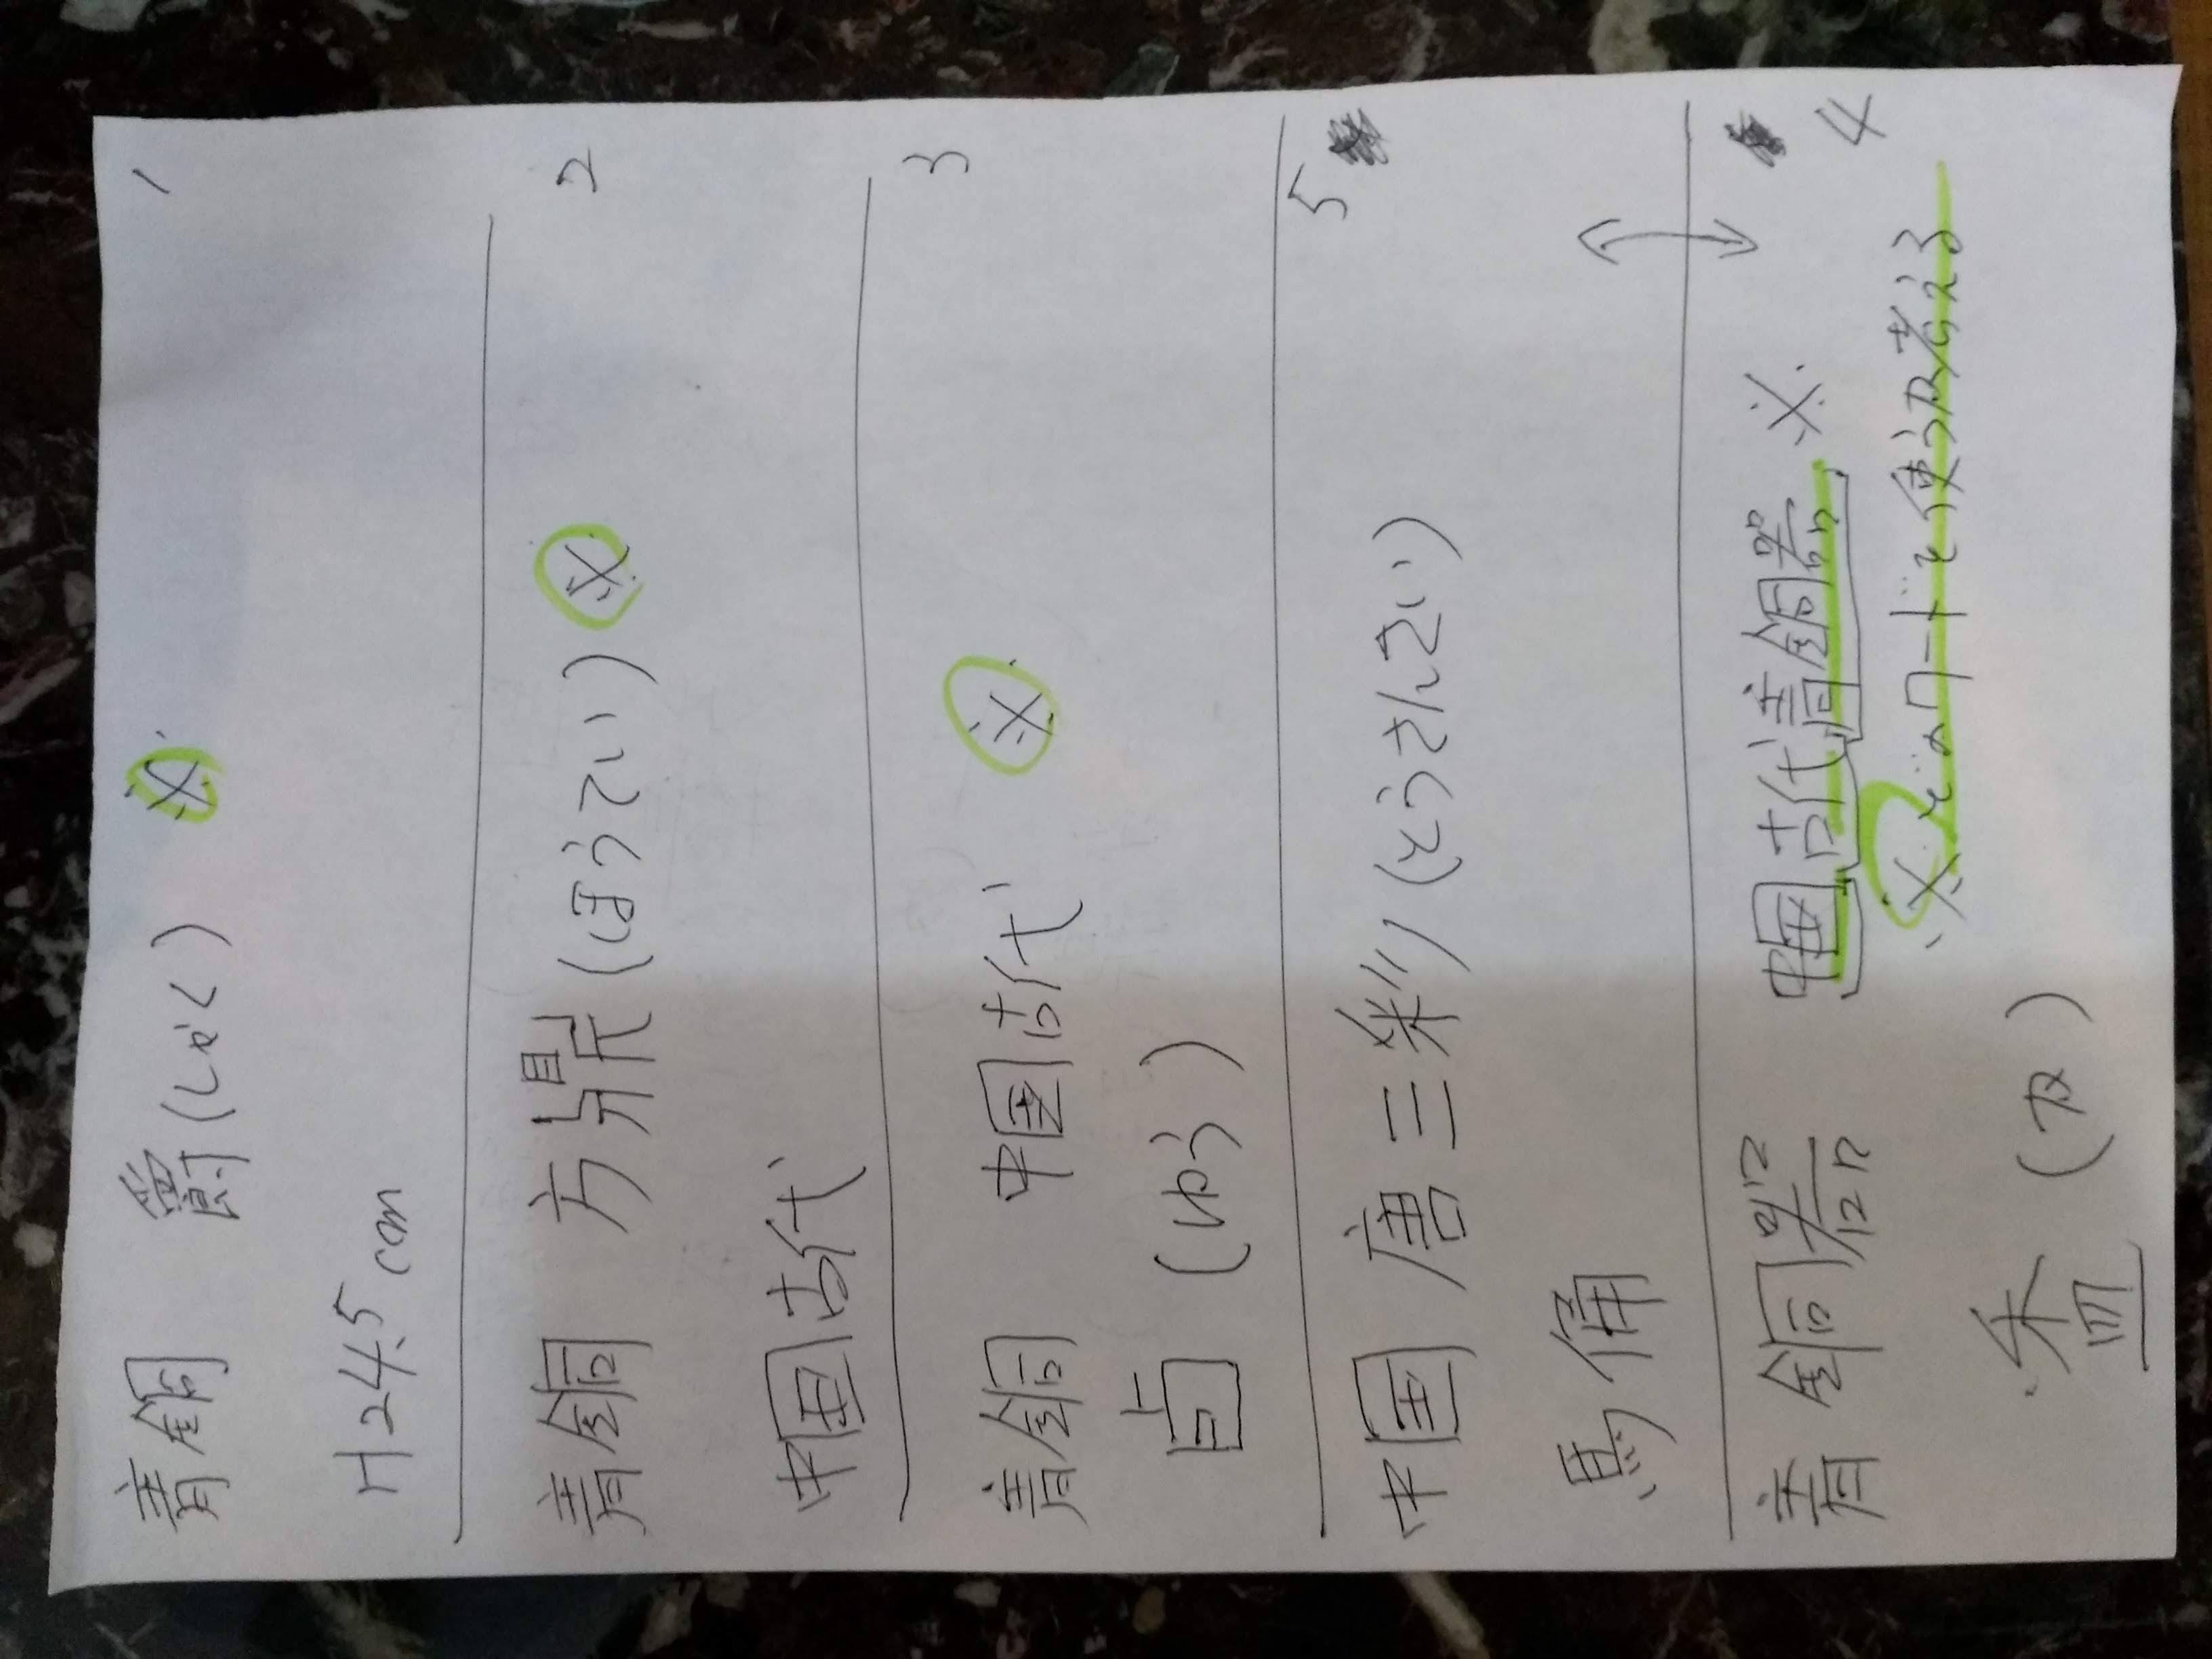 青銅 爵(しゃく) ※ 1
H24.5cm
青銅 方鼎(ほうてい)※ 2
中国古代
青銅 中国古代 ※ 3
卣(ゆう)
中国 唐三彩(とうさんさい) 5
馬俑
青銅器 中国古代青銅器※ 4
※どのワードを使うか考える
盉(か)